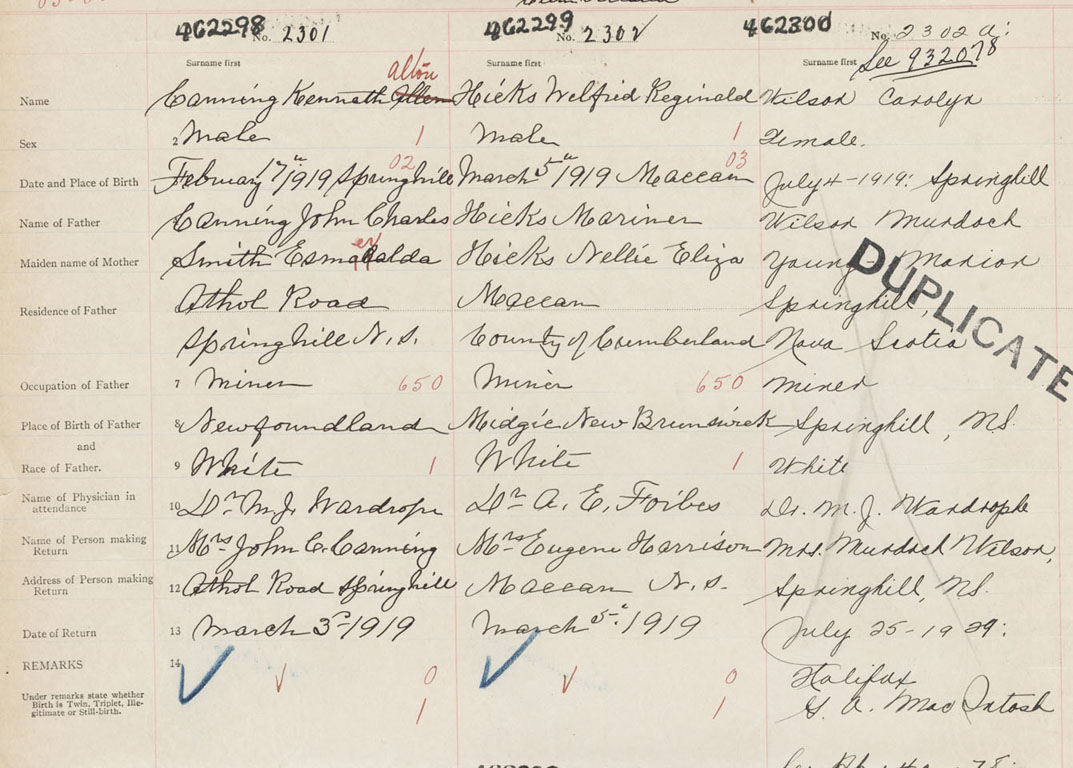 462298 No. 2301 462299 No. 2302 462300 No. 2302 a:
Surname first Surname first Surname first See 932078
alton
Name Canning Kenneth Allen Hicks Welfred Reginald Wilson Carolyn
Sex 2 Male 1 Male 1 Female.
02 03
Date and Place of Birth February 17th 1919 Springhill March 5th 1919 Maccan July 4-1919: Springhill
Name of Father Canning John Charles Hicks Mariner Wilson Murdoch
er
Maiden name of Mother Smith Esmaralda Hicks Nellie Eliza Young Marion
Residence of Father Athol Road Maccan Springhill,
Springhill N.S. County of Cumberland Nova Scotia
DUPLICATE
Occupation of Father 7 Miner 650 Miner 650 Miner
Place of Birth of Father 8 Newfoundland Midgic New Brunswick Springhill, N.S.
and
Race of Father. 9 White 1 White 1 White
Name of Physician in attendance 10 Dr M.J. Wardrope Dr A. E. Forbes Dr. M. J. Wardrophe
Name of Person making Return 11 Mrs John C. Canning Mrs Eugene Harrison Mrs. Murdoch Wilson,
Address of Person making Return 12 Athol Road Springhill Maccan N.S. Springhill, N.S.
Date of Return 13 March 3rd 1919 March 5th 1919 July 25-1929:
REMARKS 14 0 0 Halifax
Under remarks state whether
Birth is Twin, Triplet, Ille-
gitimate or Still-birth. 1 1 G. A. MacIntosh